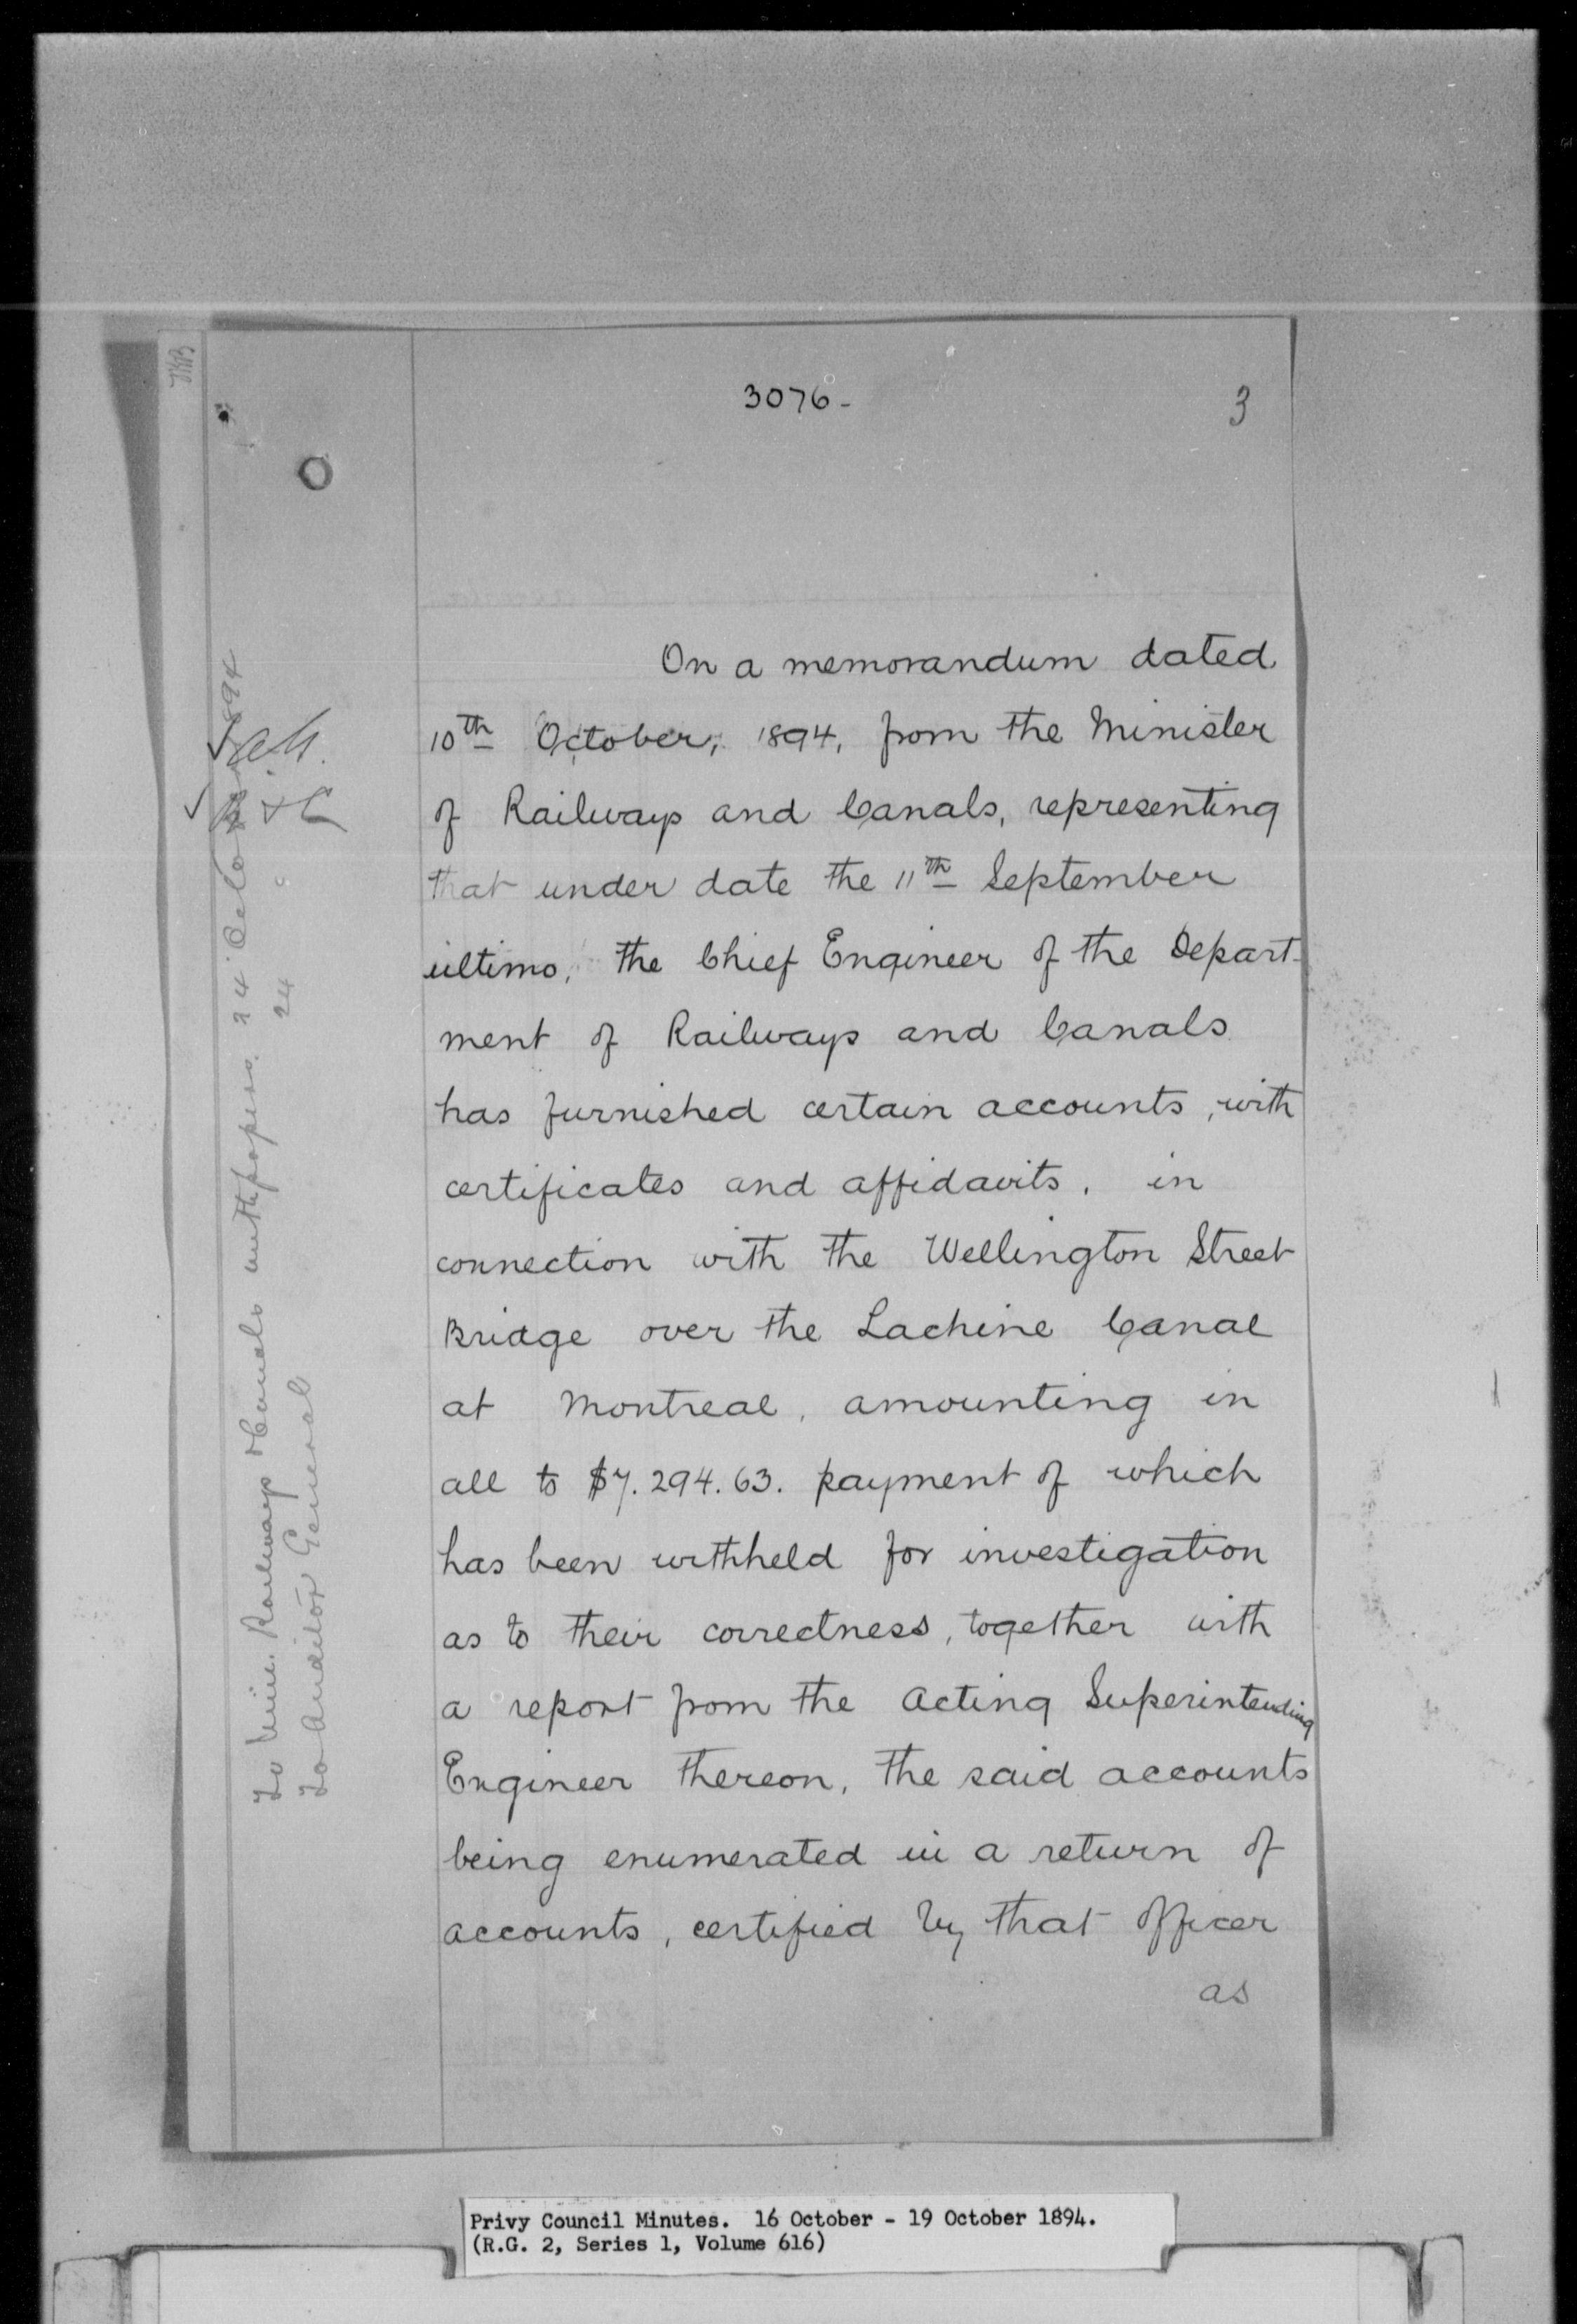 3076-
3
On a memorandum dated
10th October, 1894, from the Minister
of Railways and Canals, representing
that under date the 11th September
ultimo, the Chief Engineer of the Depart-
ment of Railways and Canals
has furnished certain accounts, with
certificates and affidavits, in
connection with the Wellington Street
Bridge over the Lachine Canal
at Montreal, amounting in
all to $7.294.63. payment of which
has been withheld for investigation
as to their correctness, together with
a report from the Acting Superintending
Engineer thereon, the said accounts
being enumerated in a return of
accounts, certified by that officer
as
To Min. Railways & Canals with papers. 24 Octo 1894
To Auditor General 24
R & C
Privy Council Minutes. 16 October - 19 October 1894.
(R.G. 2, Series 1, Volume 616)